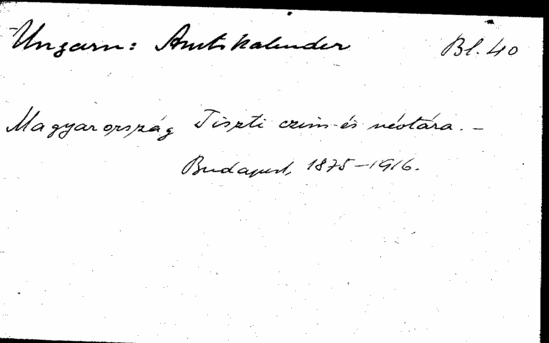 Ungarn: Amtskalender Bl. 40
Magyarország Tiszti czim- és névtára. –
Budapest, 1875–1916.